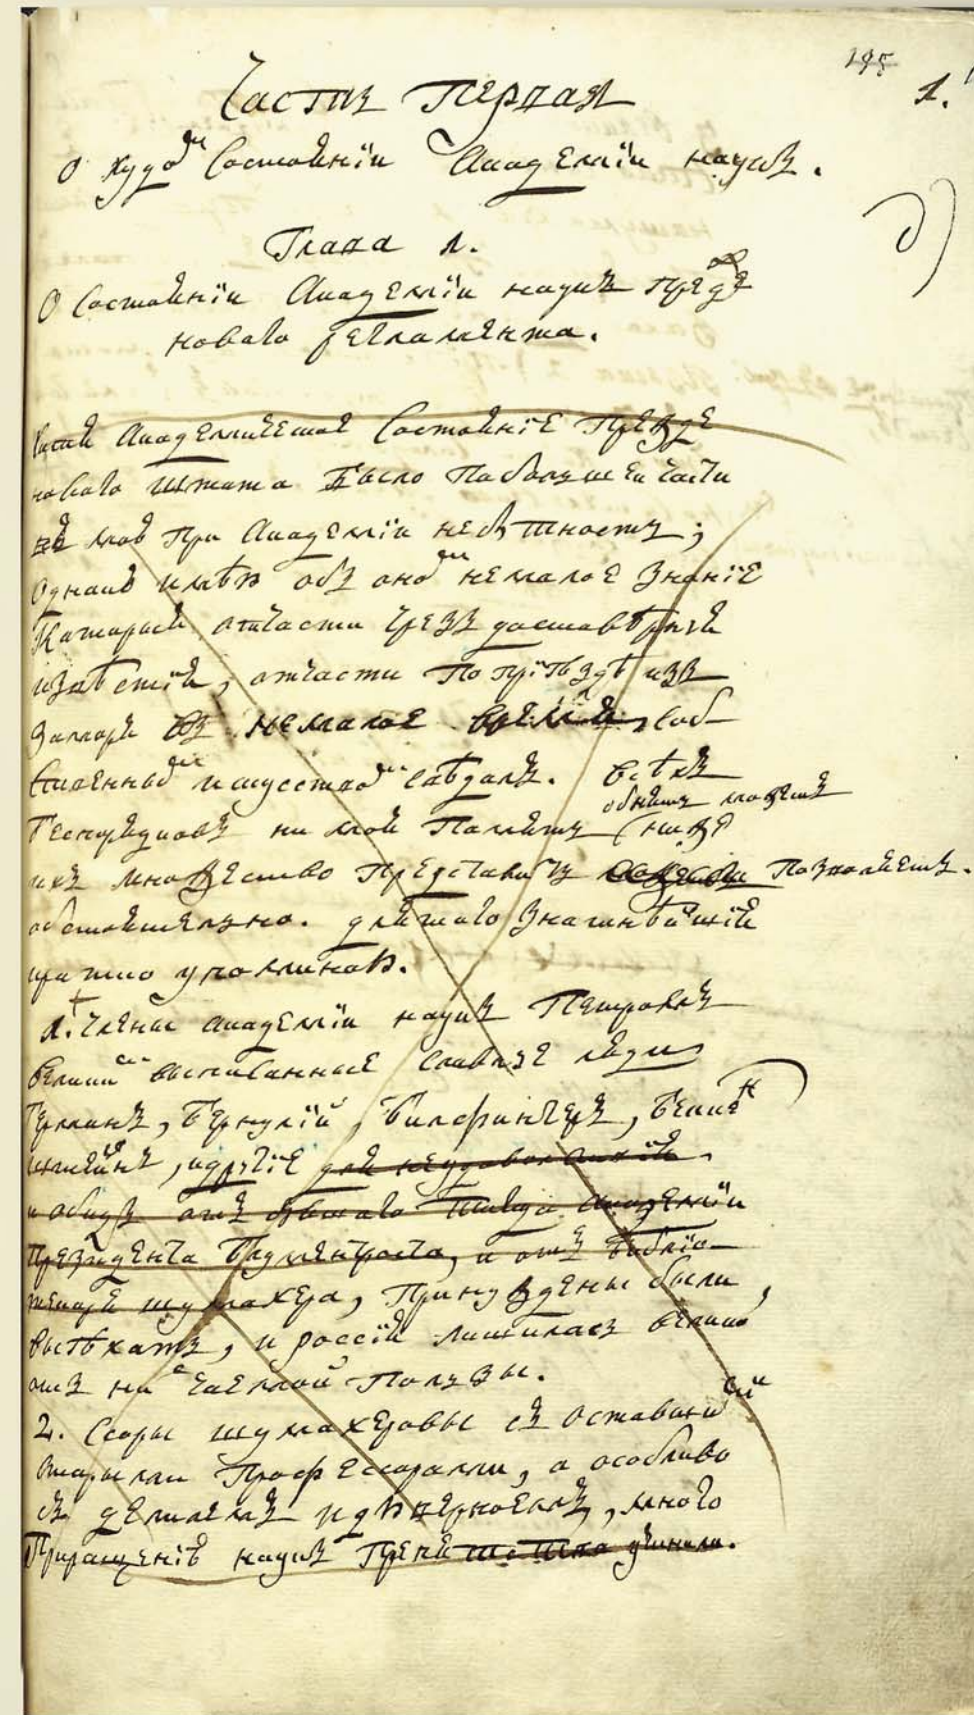 195
1.
Часть Первая
О худомъ Состоянїи Академїи наукъ.
Глава 1.
О Состоянїи Академїи наукъ прежде
новаго регламента.
Академическое Состоянїе прежде
новаго штата было по большей части
при Академїи небытность;
однако имѣю объ ономъ немалое знанїе
которой отчасти чрезъ достовѣрныя
извѣстїя, отчасти по прїѣздѣ изъ
заморя въ немалое время, соб-
ственнымъ искусствомъ свѣдалъ. Всѣхъ
обнять можетъ
безпорядковъ ни моя память ниже
ихъ множество представить позволяетъ
обстоятельно. для того знатнѣйшїя
кратко упомяновъ.
1. Члены Академїи наукъ Петромъ
Великимъ выписанные славные люди
Германъ, Бернулїй, Билфингеръ, Бекен-
штейнъ, и другїе для неудовольствїя
и обидъ отъ бывшаго тогда Академїи
Президента Блументроста, и отъ библїо-
текаря шумахера, принуждены были
выѣхать, и россїя лишилась великой
отъ нихъ чаемой пользы.
2. Ссоры шумахеровы съ оставшими
старыми Профессорами, а особливо
съ делилемъ и дюверноемъ, много
Приращенїю наукъ препятства учинили.